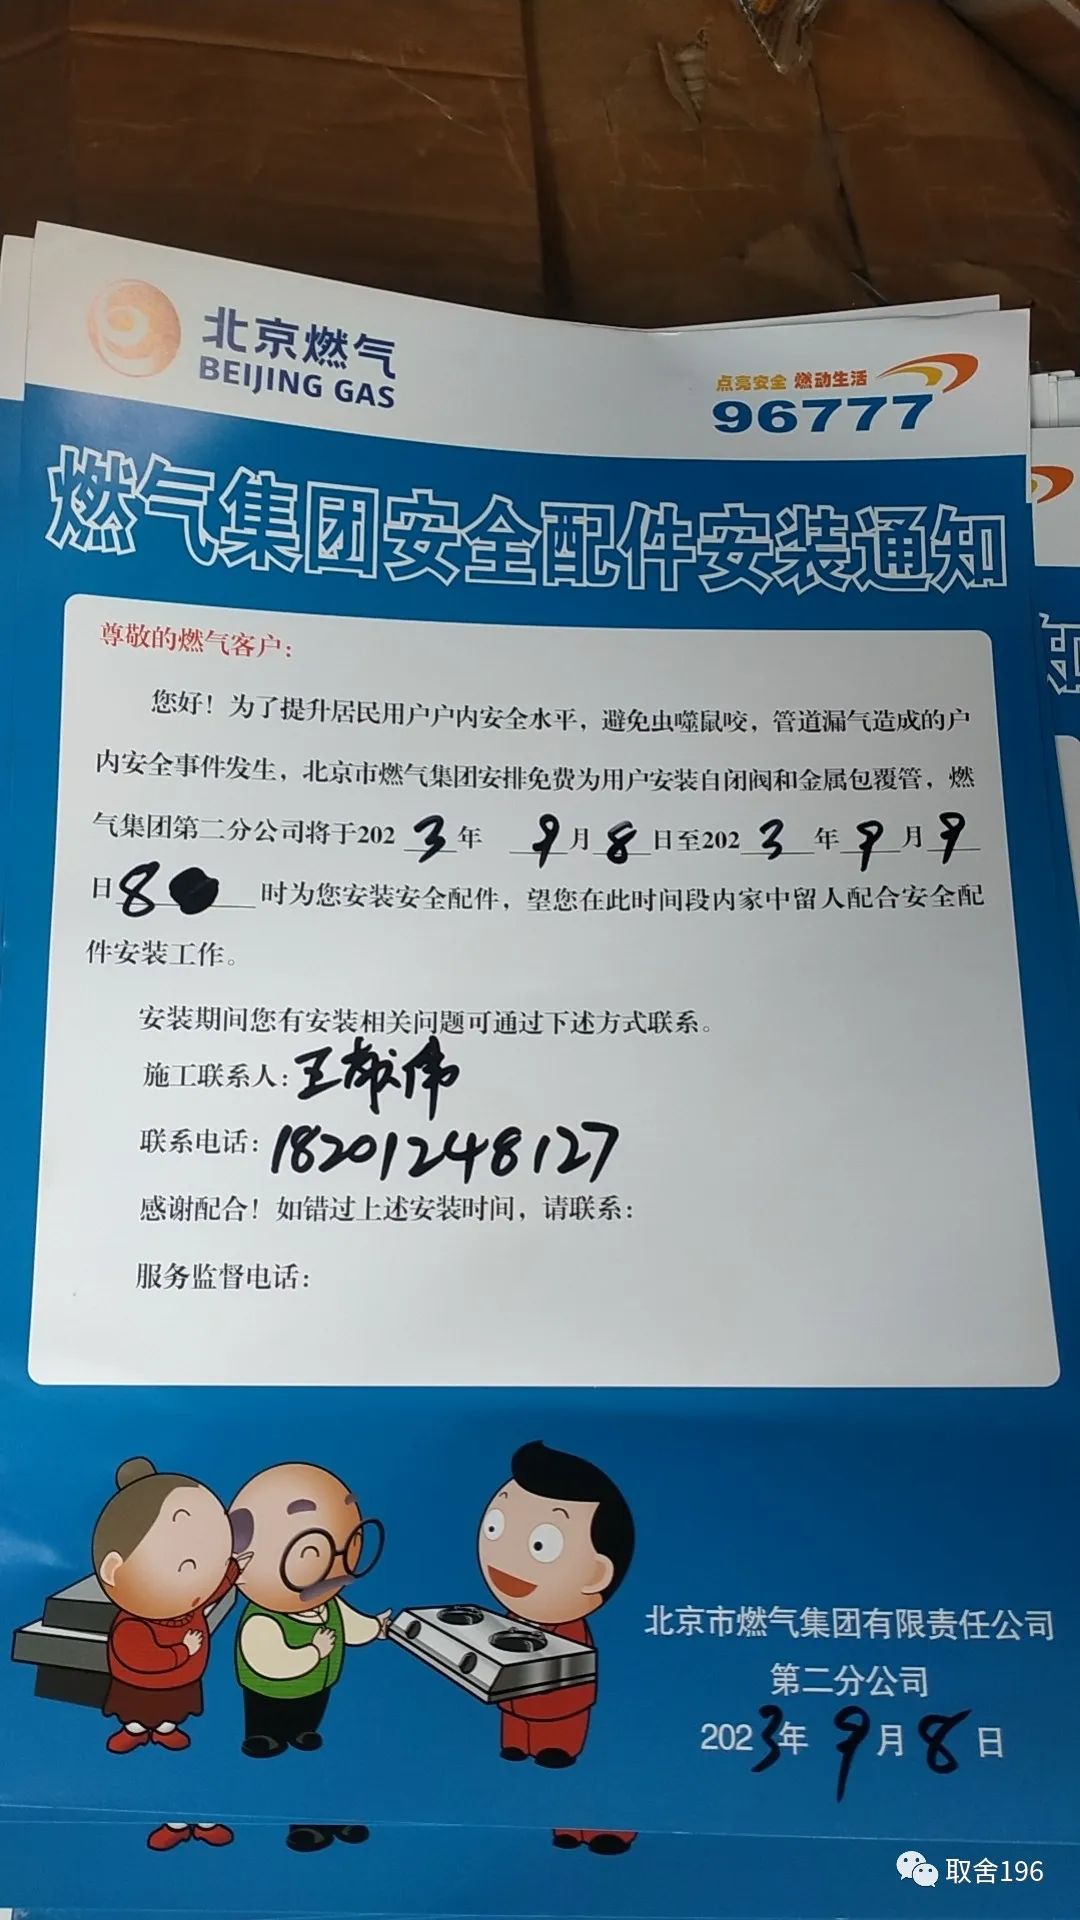 北京燃气
BEIJING GAS
点亮安全 燃动生活
96777
燃气集团安全配件安装通知
尊敬的燃气客户：
您好！为了提升居民用户户内安全水平，避免虫噬鼠咬，管道漏气造成的户
内安全事件发生，北京市燃气集团安排免费为用户安装自闭阀和金属包覆管，燃
气集团第二分公司将于2023年 9月8日至2023年9月9
日8 时为您安装安全配件，望您在此时间段内家中留人配合安全配
件安装工作。
安装期间您有安装相关问题可通过下述方式联系。
施工联系人：王 伟
联系电话：18201248127
感谢配合！如错过上述安装时间，请联系：
服务监督电话：
北京市燃气集团有限责任公司
第二分公司
2023年9月8日
取舍196